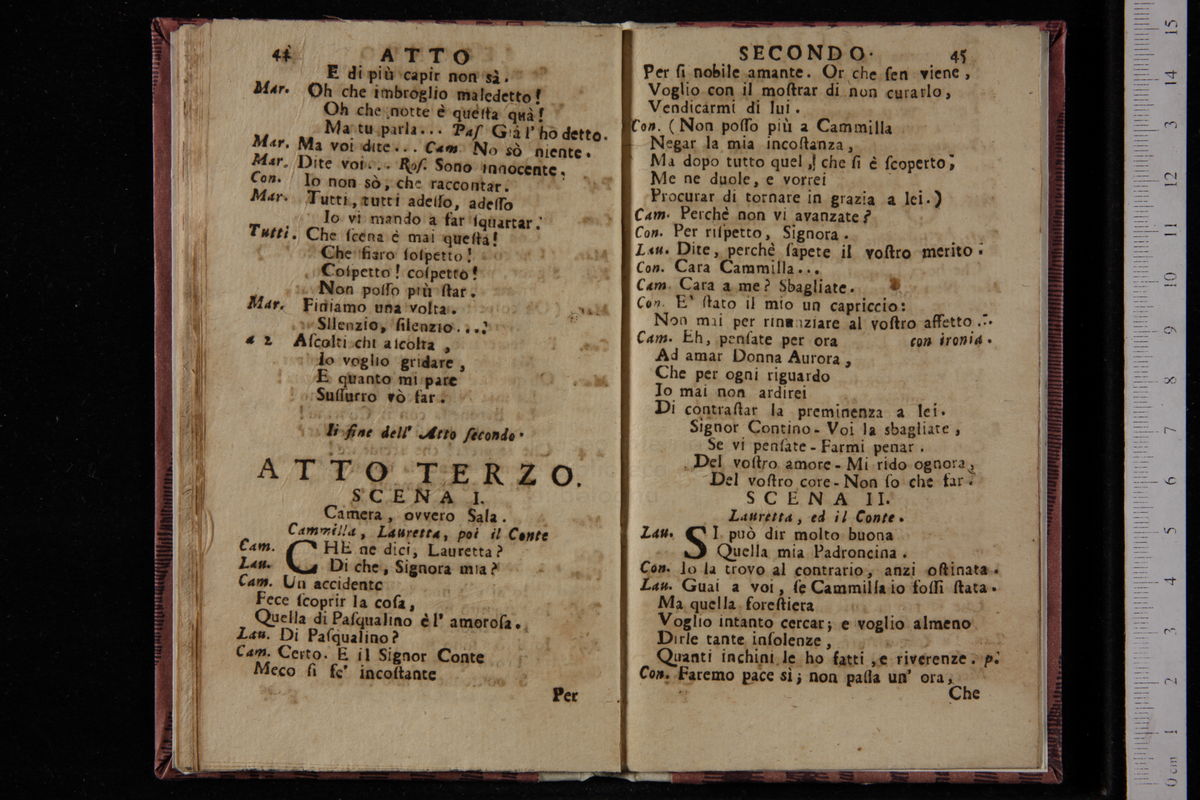 44 ATTO
E di più capir non sà.
Mar. Oh che imbroglio maledetto!
Oh che notte è queſta quà!
Ma tu parla... Paſ Già l' hò detto.
Mar. Ma voi dite... Cam. No sò niente.
Mar. Dite voi... Roſ. Sono innocente.
Con. Io non sò, che raccontar.
Mar. Tutti, tutti adeſſo, adeſſo
Io vi mando a far ſquartar.
Tutti. Che ſcena è mai queſta!
Che fiaro ſoſpetto!
Coſpetto! coſpetto!
Non poſſo più ſtar.
Mar. Finiamo una volta.
Silenzio, ſilenzio...
a 2 Aſcolti chi aſcolta,
Io voglio gridare,
E quanto mi pare
Suſſurro vò far.
Il fine dell' Atto ſecondo.
ATTO TERZO.
SCENA I.
Camera, ovvero Sala.
Cammilla, Lauretta, poi il Conte
Cam. CHE ne dici, Lauretta?
Lau. Di che, Signora mia?
Cam. Un accidente
Fece ſcoprir la coſa,
Quella di Paſqualino è l' amoroſa.
Lau. Di Paſqualino?
Cam. Certo. E il Signor Conte
Meco ſi fe' incoſtante
Per
SECONDO. 45
Per ſi nobile amante. Or che ſen viene,
Voglio con il moſtrar di non curarlo,
Vendicarmi di lui.
Con. (Non poſſo più a Cammilla
Negar la mia incoſtanza,
Ma dopo tutto quel, che ſi è ſcoperto;
Me ne duole, e vorrei
Procurar di tornare in grazia a lei.)
Cam. Perchè non vi avanzate?
Con. Per riſpetto, Signora.
Lau. Dite, perchè ſapete il voſtro merito.
Con. Cara Cammilla...
Cam. Cara a me? Sbagliate.
Con. E' ſtato il mio un capriccio:
Non mai per rinunziare al voſtro affetto...
Cam. Eh, penſate per ora con ironia.
Ad amar Donna Aurora,
Che per ogni riguardo
Io mai non ardirei
Di contraſtar la preminenza a lei.
Signor Contino - Voi la sbagliate,
Se vi penſate - Farmi penar.
Del voſtro amore - Mi rido ognora,
Del voſtro core - Non ſo che far.
SCENA II.
Lauretta, ed il Conte.
Lau. SI può dir molto buona
Quella mia Padroncina.
Con. Io la trovo al contrario, anzi oſtinata.
Lau. Guai a voi, ſe Cammilla io foſſi ſtata.
Ma quella foreſtiera
Voglio intanto cercar; e voglio almeno
Dirle tante inſolenze,
Quanti inchini le ho fatti, e riverenze. p.
Con. Faremo pace sì; non paſſa un' ora,
Che
0 cm 1 2 3 4 5 6 7 8 9 10 11 12 13 14 15